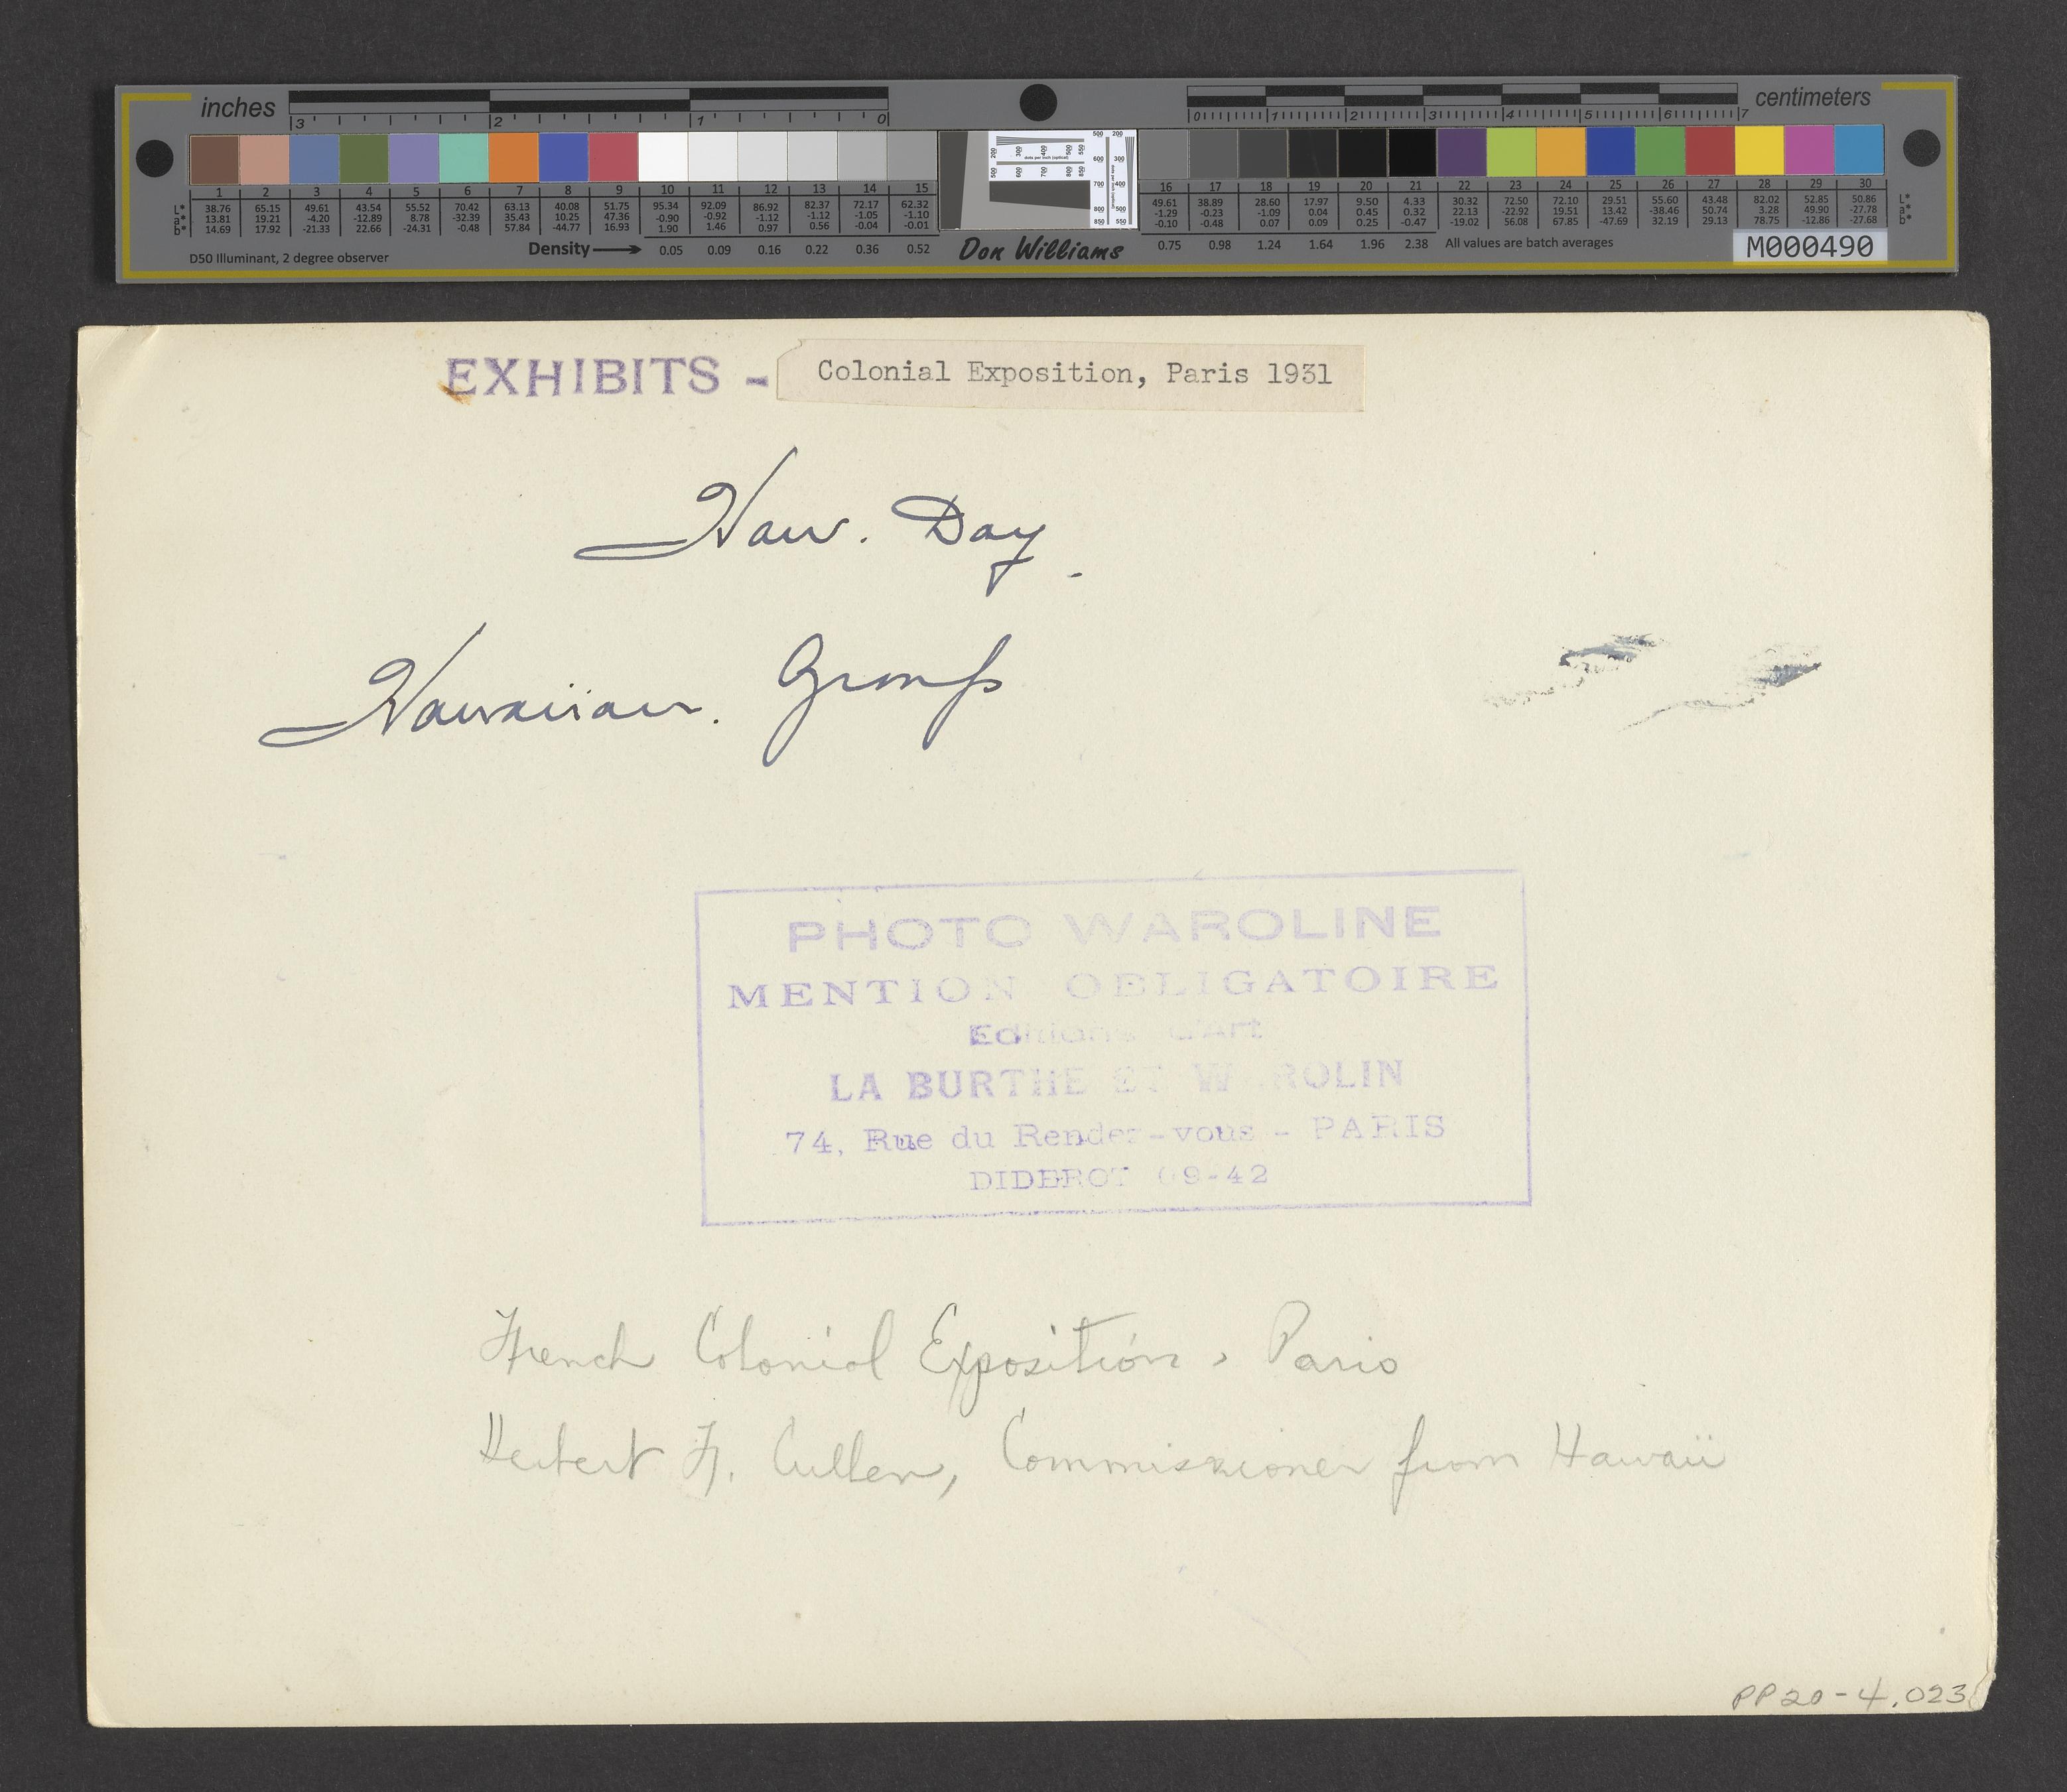 inches
centimeters
3 2 1 0
0 1 2 3 4 5 6 7
1 2 3 4 5 6 7 8 9 10 11 12 13 14 15
16 17 18 19 20 21 22 23 24 25 26 27 28 29 30
L* 38.76 65.15 49.61 43.54 55.52 70.42 63.13 40.08 51.75 95.34 92.09 86.92 82.37 72.17 62.32
a* 13.81 19.21 -4.20 -12.89 8.78 -32.39 35.43 10.25 47.36 -0.90 -0.92 -1.12 -1.12 -1.05 -1.10
b* 14.69 17.92 -21.33 22.66 -24.31 -0.48 57.84 -44.77 16.93 1.90 1.46 0.97 0.56 -0.04 -0.01
49.61 38.89 28.60 17.97 9.50 4.33 30.32 72.50 72.10 29.51 55.60 43.48 82.02 52.85 50.86 L*
-1.29 -0.23 -1.09 0.04 0.45 0.32 22.13 -22.92 19.51 13.42 -38.46 50.74 3.28 49.90 -27.78 a*
-0.10 -0.48 0.07 0.09 0.25 -0.47 -19.02 56.08 67.85 -47.69 32.19 29.13 78.75 -12.86 -27.68 b*
D50 Illuminant, 2 degree observer
Density 0.05 0.09 0.16 0.22 0.36 0.52
Don Williams
0.75 0.98 1.24 1.64 1.96 2.38 All values are batch averages
M000490
EXHIBITS - Colonial Exposition, Paris 1931
Haw. Day.
Hawaiian. Group
PHOTO WAROLINE
MENTION OBLIGATOIRE
Editions d'Art
LA BURTHE ET WAROLIN
74, Rue du Rendez-vous - PARIS
DIDEROT 09-42
French Colonial Exposition, Paris
Herbert F. Cullen, Commissioner from Hawaii
PP20-4.023